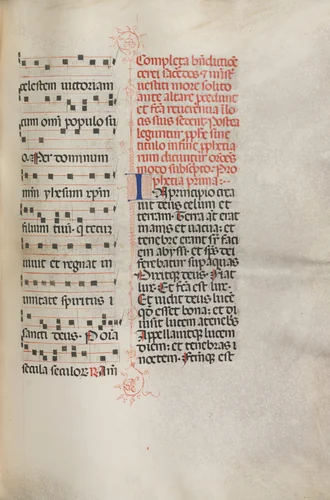 celestem uictoriam
cum omi populo su
o. Per dominum
nrm yhesum xpm
filium tuū. q tecū
uiuit et regnat in
unitate spiritus s
sancti deus. P oia
secula seculoꝝ. R Am
Completa bndictiōe
cerei sacerdos ⁊ minist̄
uestiti more solito
ante altare procedunt
et fcā reuerencia ī lo
cis suis sedent. Postea
leguntur pphe sine
titulo in fine pphetia
rum dicuntur orōes
modo subscpto. Pro
phetia prima:
In principio crea
uit deus celum et
terram. Terra aūt erat
inanis et uacua: et
tenebre erant sup faci
em abyssi: et sps dei
ferebatur sup aquas
Dixitque deus. Fiat
lux. Et fca est lux.
Et uidit deus lucē
qd esset bona: et di
uisit lucem a tenebris
Appellauitque lucem
diem: et tenebras
noctem. Factumque est